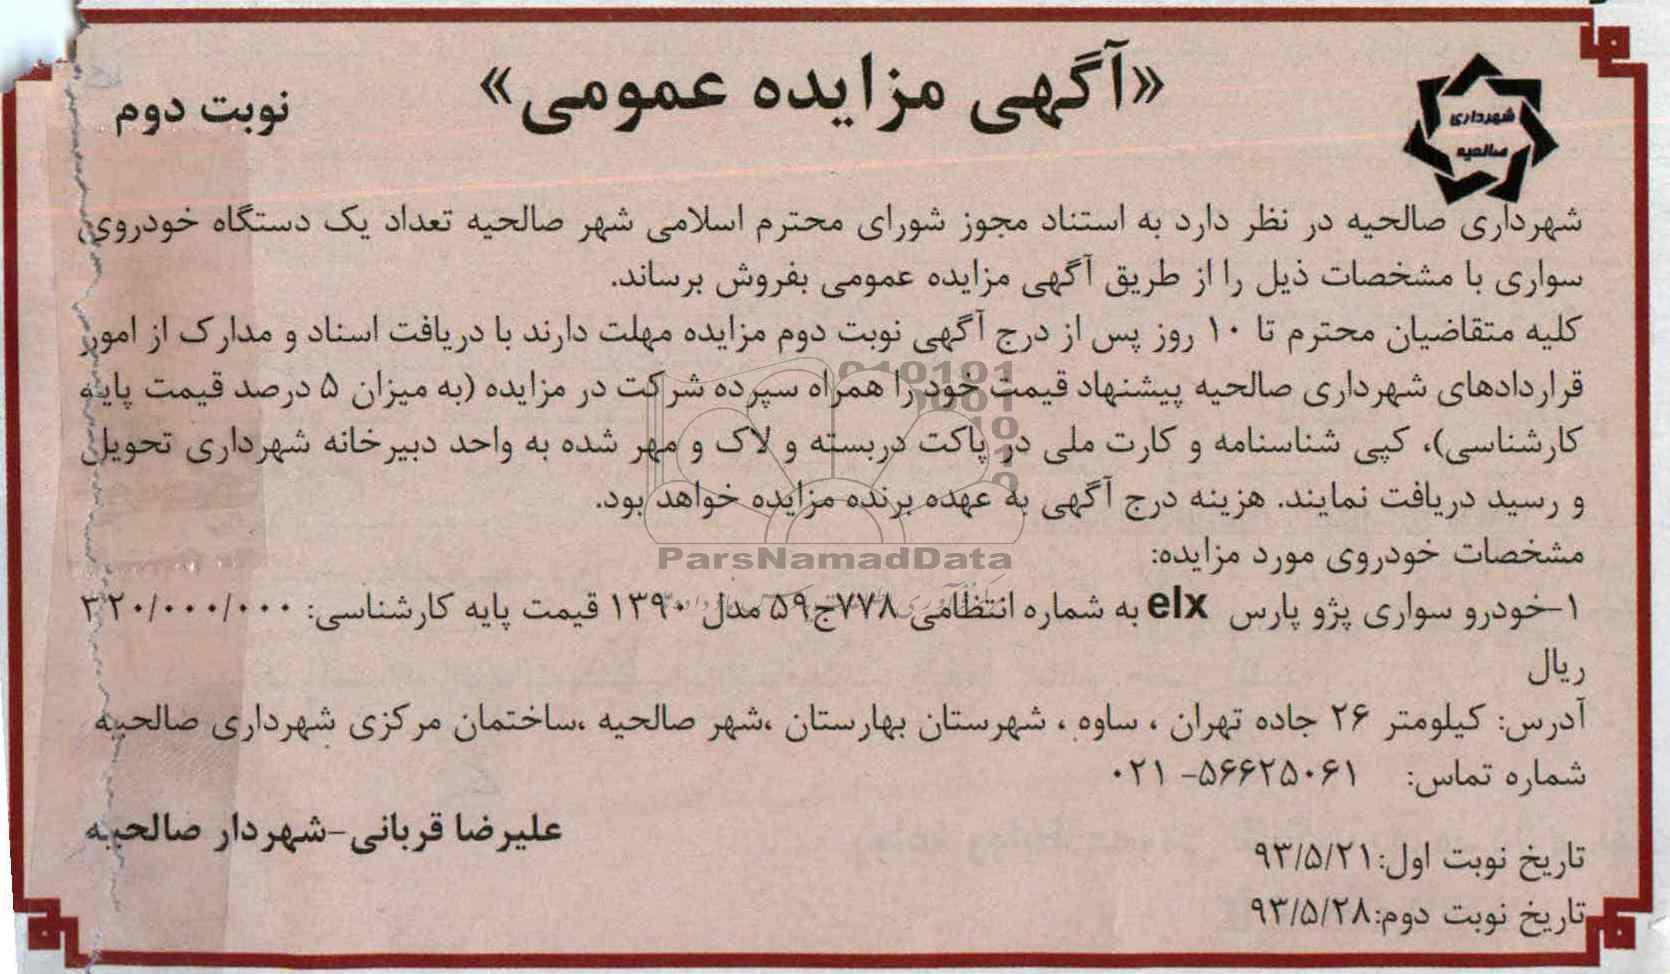 «آگهی مزایده عمومی»
نوبت دوم
شهرداری
صالحیه
شهرداری صالحیه در نظر دارد به استناد مجوز شورای محترم اسلامی شهر صالحیه تعداد یک دستگاه خودروی
سواری با مشخصات ذیل را از طریق آگهی مزایده عمومی بفروش برساند.
کلیه متقاضیان محترم تا ۱۰ روز پس از درج آگهی نوبت دوم مزایده مهلت دارند با دریافت اسناد و مدارک از امور
قراردادهای شهرداری صالحیه پیشنهاد قیمت خود را همراه سپرده شرکت در مزایده (به میزان ۵ درصد قیمت پایه
کارشناسی)، کپی شناسنامه و کارت ملی در پاکت دربسته و لاک و مهر شده به واحد دبیرخانه شهرداری تحویل
و رسید دریافت نمایند. هزینه درج آگهی به عهده برنده مزایده خواهد بود.
ParsNamadData
مشخصات خودروی مورد مزایده:
۱-خودرو سواری پژو پارس elx به شماره انتظامی ۷۷۸ج۵۹ مدل ۱۳۹۰ قیمت پایه کارشناسی: ۳۲۰/۰۰۰/۰۰۰
ریال
آدرس: کیلومتر ۲۶ جاده تهران ، ساوه ، شهرستان بهارستان ،شهر صالحیه ،ساختمان مرکزی شهرداری صالحیه
شماره تماس: ۵۶۶۲۵۰۶۱- ۰۲۱
علیرضا قربانی-شهردار صالحیه
تاریخ نوبت اول:۹۳/۵/۲۱
تاریخ نوبت دوم:۹۳/۵/۲۸